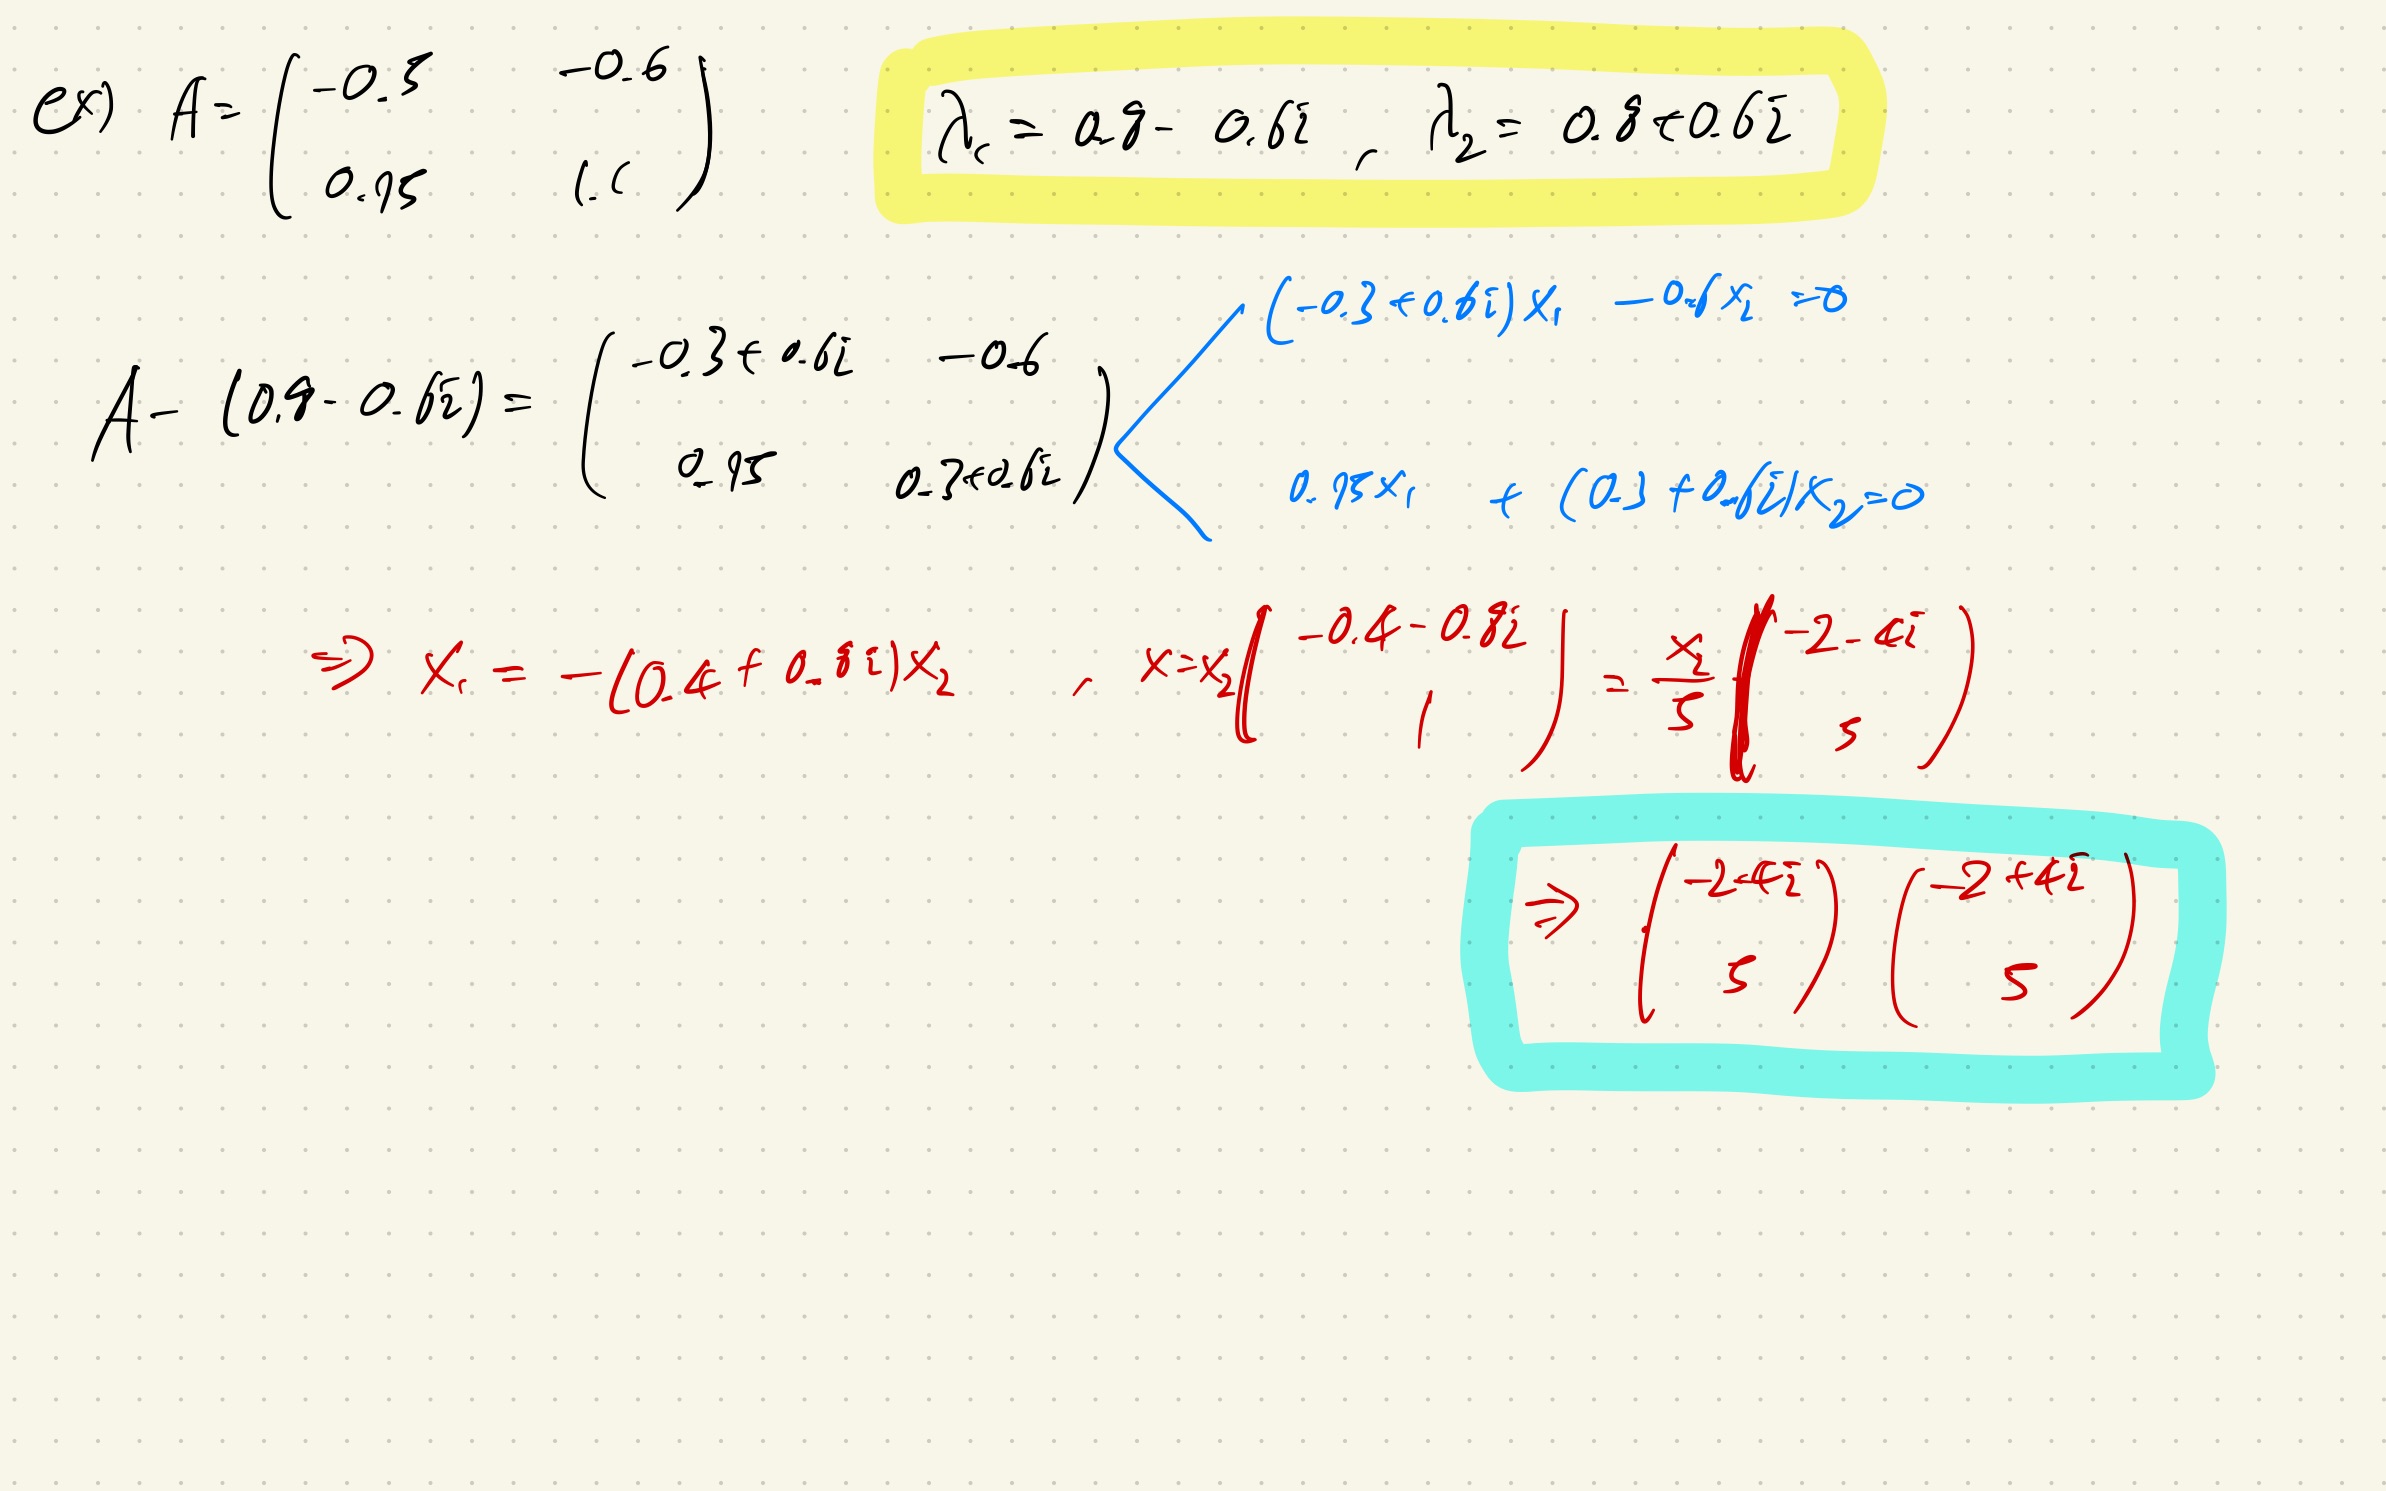 ex) A = ( -0.5 -0.6
0.75 1.1 )
λ₁ = 0.8 - 0.6i , λ₂ = 0.8 + 0.6i
A - (0.8 - 0.6i) = ( -0.3 + 0.6i -0.6
0.75 0.3 + 0.6i )
(-0.3 + 0.6i)x₁ - 0.6x₂ = 0
0.75x₁ + (0.3 + 0.6i)x₂ = 0
⇒ x₁ = -(0.4 + 0.8i)x₂ , x = x₂ ( -0.4 - 0.8i
1 ) = x₂/5 ( -2 - 4i
5 )
⇒ ( -2 - 4i
5 ) ( -2 + 4i
5 )